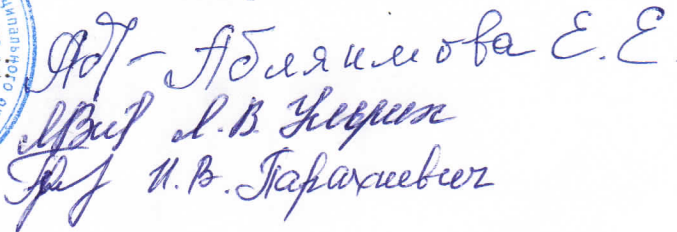 Абляимова Е.Е.
Л.В. Ульрих
И.В. Парахневич